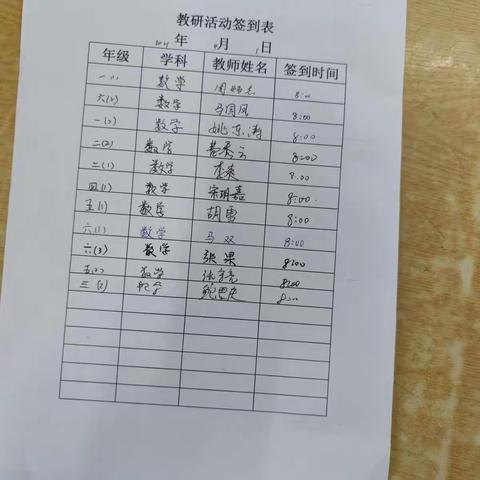 教研活动签到表
年 4月 1日
年级 学科 教师姓名 签到时间
一(1) 数学 8:00
六(2) 数学 马国凤 8:00
一(2) 数学 姚东涛 8:00
二(2) 数学 8:00
二(1) 数学 李来 8:00
四(1) 数学 宋明嘉 8:00
五(1) 数学 胡雪 8:00
六(1) 数学 马双 8:00
六(3) 数学 张果 8:00
数学 8:00
三(2) 数学 8:00